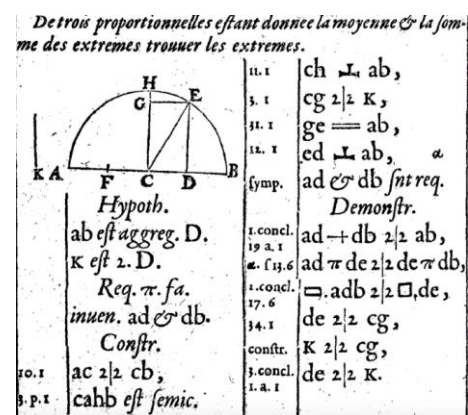 De trois proportionnelles eſtant donnee la moyenne & la ſom-
me des extremes trouuer les extremes.
H
G E
K A F C D B
Hypoth.
ab eſt aggreg. D.
K eſt 2. D.
Req. π. fa.
inuen. ad & db.
Conſtr.
10.1 ac 2|2 cb,
3.p.1 cahb eſt ſemic.
11.1 ch ⊥ ab,
3.1 cg 2|2 K,
31.1 ge = ab,
12.1 ed ⊥ ab, α
ſymp. ad & db ſnt req.
Demonſtr.
1.concl.
19 a.1 ad + db 2|2 ab,
α. ſ 13.6 ad π de 2|2 de π db,
2.concl.
17.6 ▭.adb 2|2 □.de,
34.1 de 2|2 cg,
conſtr. K 2|2 cg,
3.concl.
1.a.1 de 2|2 K.